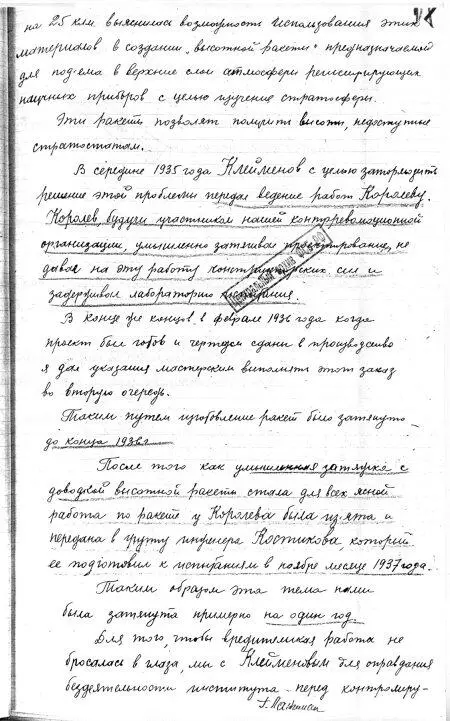 на 25 клм. выяснилась возможность использования этих
материалов в создании "высотной ракеты" предназначаемой
для под'ема в верхние слои атмосферы регистрирующих
научных приборов с целью изучение стратосферы.
Эти ракеты позволят получить высоты, недоступные
стратостатам.
В середине 1935 года Клейменов с целью затормозить
решение этой проблемы передал ведение работ Королеву.
Королев, будучи участником нашей контрреволюционной
организации, умышленно затягивал проектирование, не
давал на эту работу конструкторских сил и
задерживал лабораторию испытания.
В конце же концов в феврале 1936 года когда
проект был готов и чертежи сданы в производство
я дал указания мастерским выполнять этот заказ
во вторую очередь.
Таким путем изготовление ракет было затянуто
до конца 1936 г.
После того как умышленная затяжка с
доводкой высотной ракеты стала для всех ясной
работа по ракете у Королева была из'ята и
передана в группу инженера Костикова, который
ее подготовил к испытаниям в ноябре месяце 1937 года.
Таким образом эта тема нами
была затянута примерно на один год.
Для того, чтобы вредительская работа не
бросалась в глаза, мы с Клейменовым для оправдания
бездеятельности института перед контролиру-
Г. Лангемак